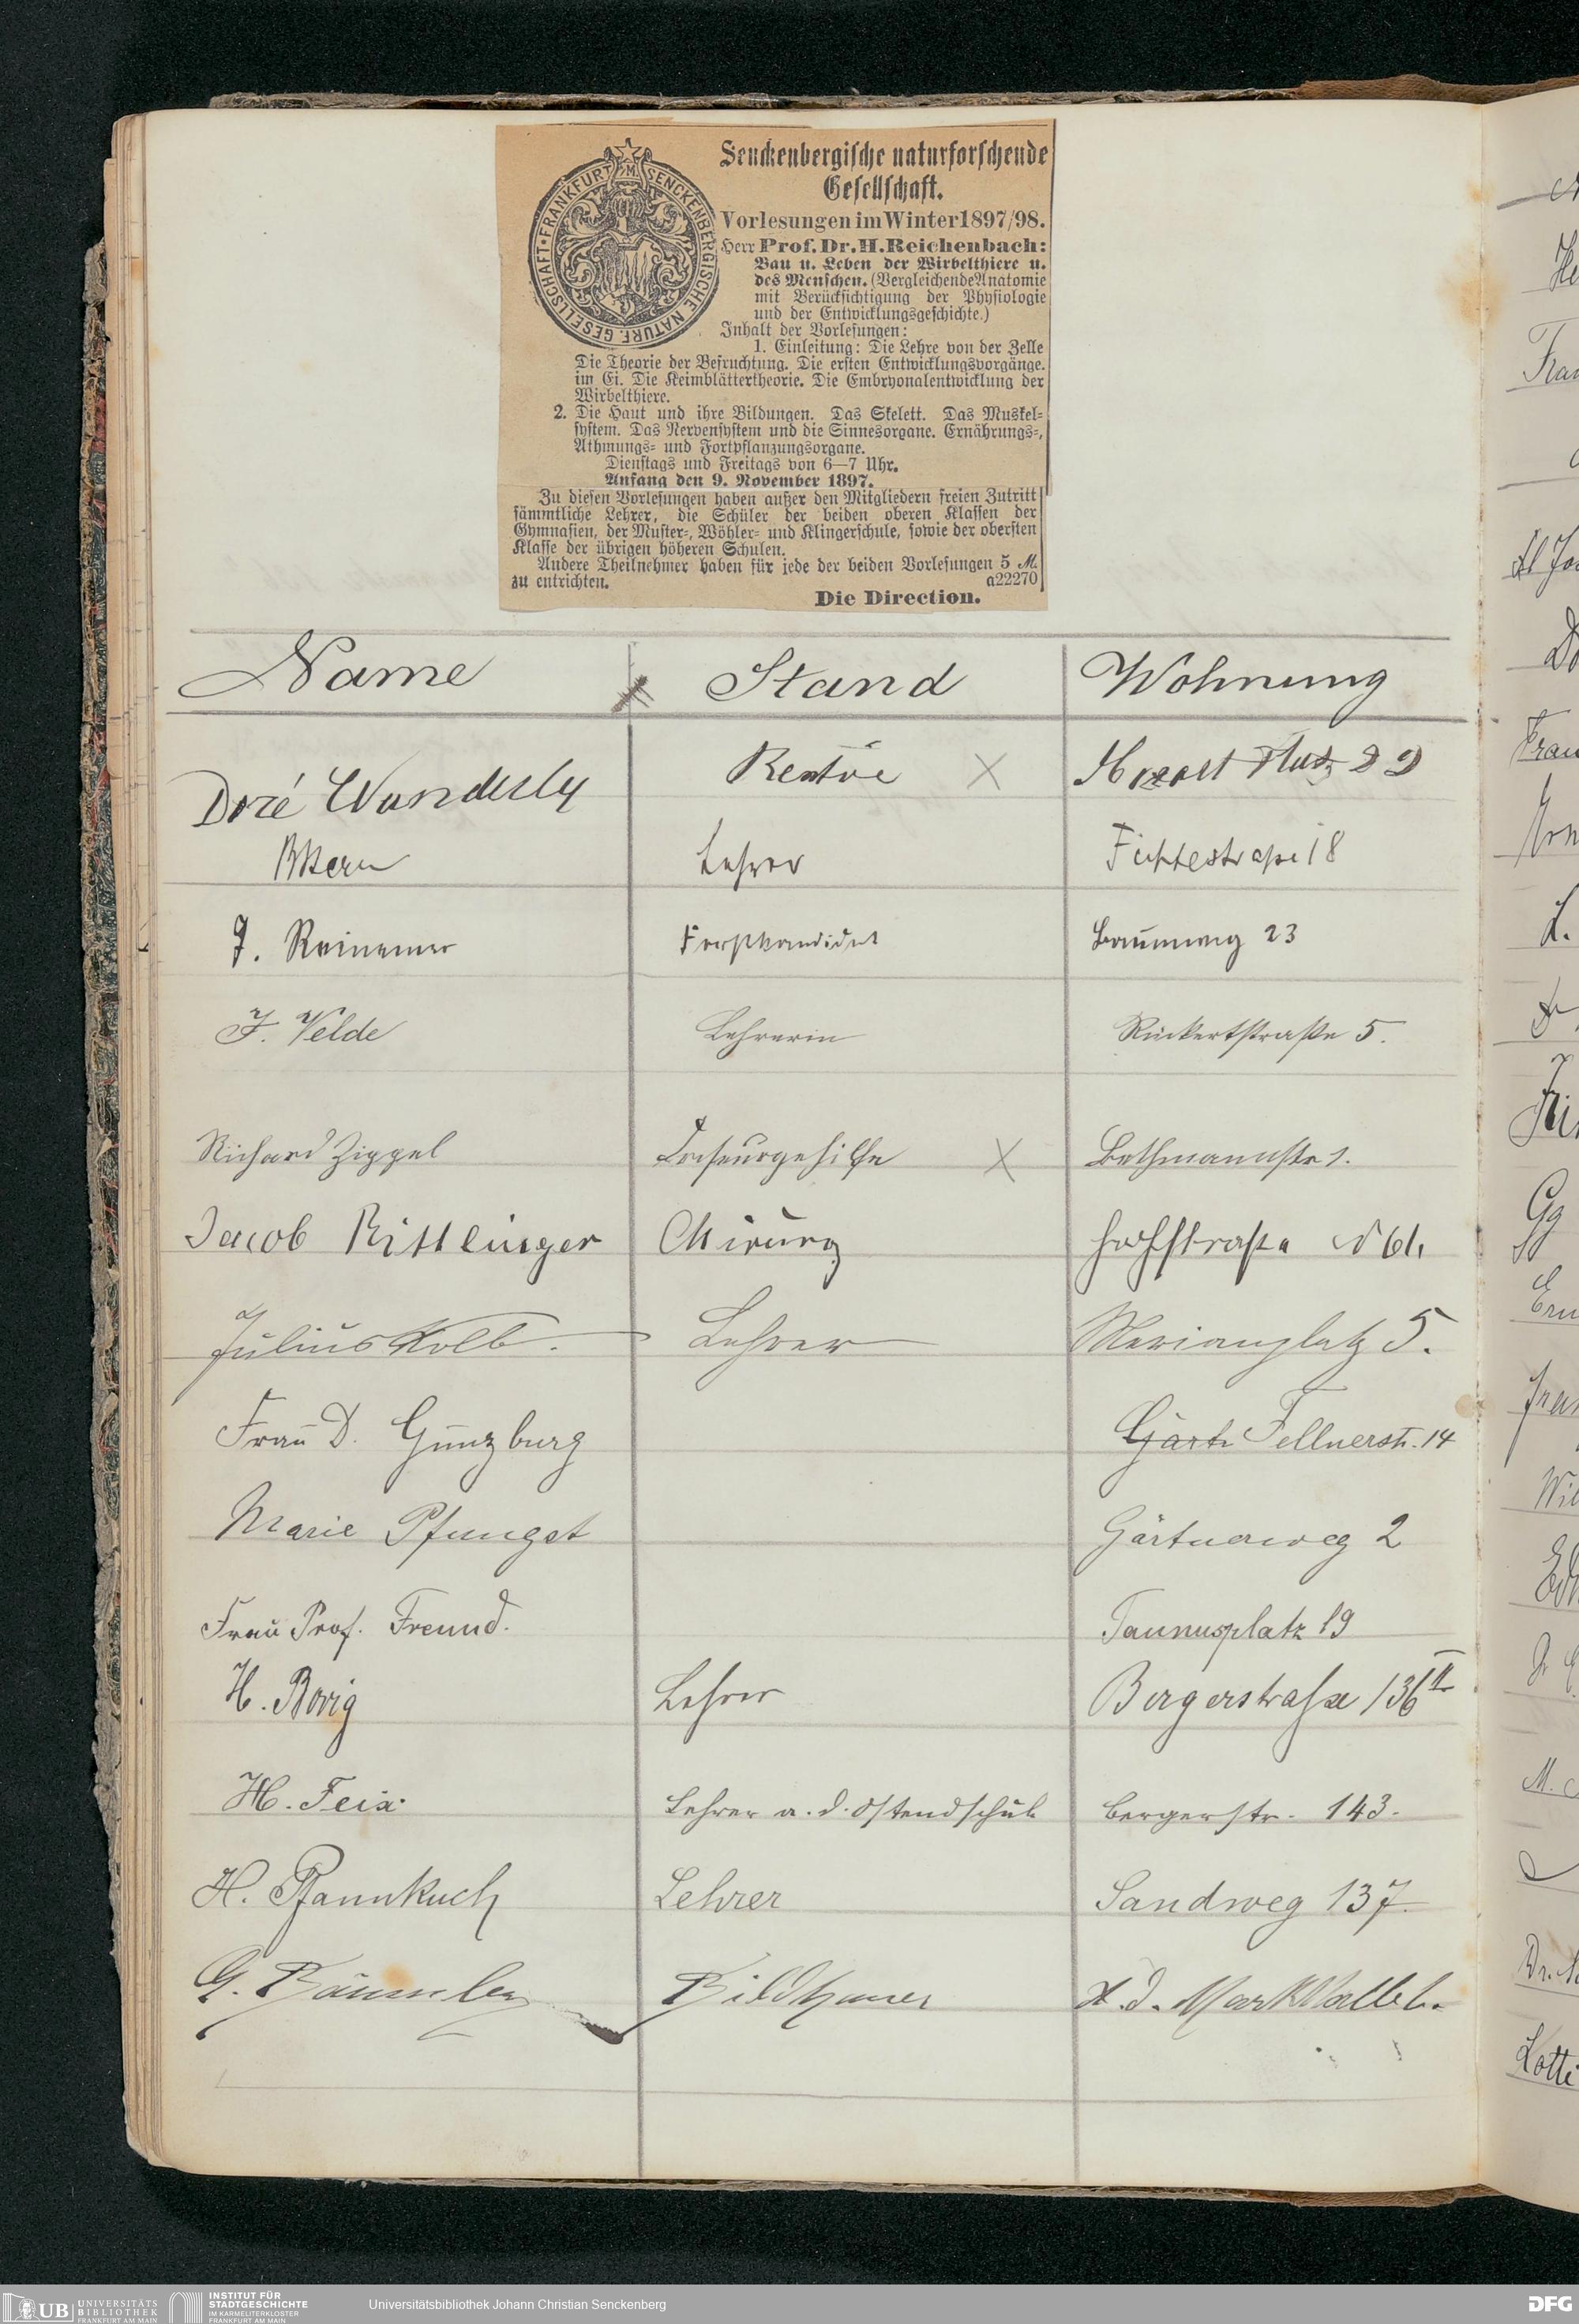 Senckenbergische naturforschende
Gesellschaft.
FRANKFURT A/M SENCKENBERGISCHE NATURF. GESELLSCHAFT
Vorlesungen im Winter 1897/98.
Herr Prof. Dr. H. Reichenbach:
Bau u. Leben der Wirbelthiere u.
des Menschen. (Vergleichende Anatomie
mit Berücksichtigung der Physiologie
und der Entwicklungsgeschichte.)
Inhalt der Vorlesungen:
1. Einleitung: Die Lehre von der Zelle
Die Theorie der Befruchtung. Die ersten Entwicklungsvorgänge.
im Ei. Die Keimblättertheorie. Die Embryonalentwicklung der
Wirbelthiere.
2. Die Haut und ihre Bildungen. Das Skelett. Das Muskel-
system. Das Nervensystem und die Sinnesorgane. Ernährungs-,
Athmungs- und Fortpflanzungsorgane.
Dienstags und Freitags von 6—7 Uhr.
Anfang den 9. November 1897.
Zu diesen Vorlesungen haben außer den Mitgliedern freien Zutritt
sämmtliche Lehrer, die Schüler der beiden oberen Klassen der
Gymnasien, der Muster-, Wöhler- und Klingerschule, sowie der obersten
Klasse der übrigen höheren Schulen.
Andere Theilnehmer haben für jede der beiden Vorlesungen 5 M.
zu entrichten. a22270
Die Direction.
Name Stand Wohnung
Doré Wunderly X Platz
Lehrer Fichtestraße 18
J. Reinemer Forstkandidat Baumweg 23
F. Velde Lehrerin Rückertstraße 5.
Richard Zippel X Bethmannstr 1.
Jacob Rittlinger Chirurg Hochstraße N 61.
Julius Kolb. Lehrer Merianplatz 5.
Frau D. Günzburg Gärtn Fellnerstr. 14
Marie Pfungst Gärtnerweg 2
Frau Prof. Freund. Taunusplatz 19
H. Borig Lehrer Bergerstraße 136 II
H. Feix. Lehrer a. d. Ostendschule Bergerstr. 143.
H. Pfannkuch Lehrer Sandweg 137.
G. Bäumler Bildhauer a. d. Markthalle 6.
UB UNIVERSITÄTS
BIBLIOTHEK
FRANKFURT AM MAIN
INSTITUT FÜR
STADTGESCHICHTE
IM KARMELITERKLOSTER
FRANKFURT AM MAIN
Universitätsbibliothek Johann Christian Senckenberg
DFG